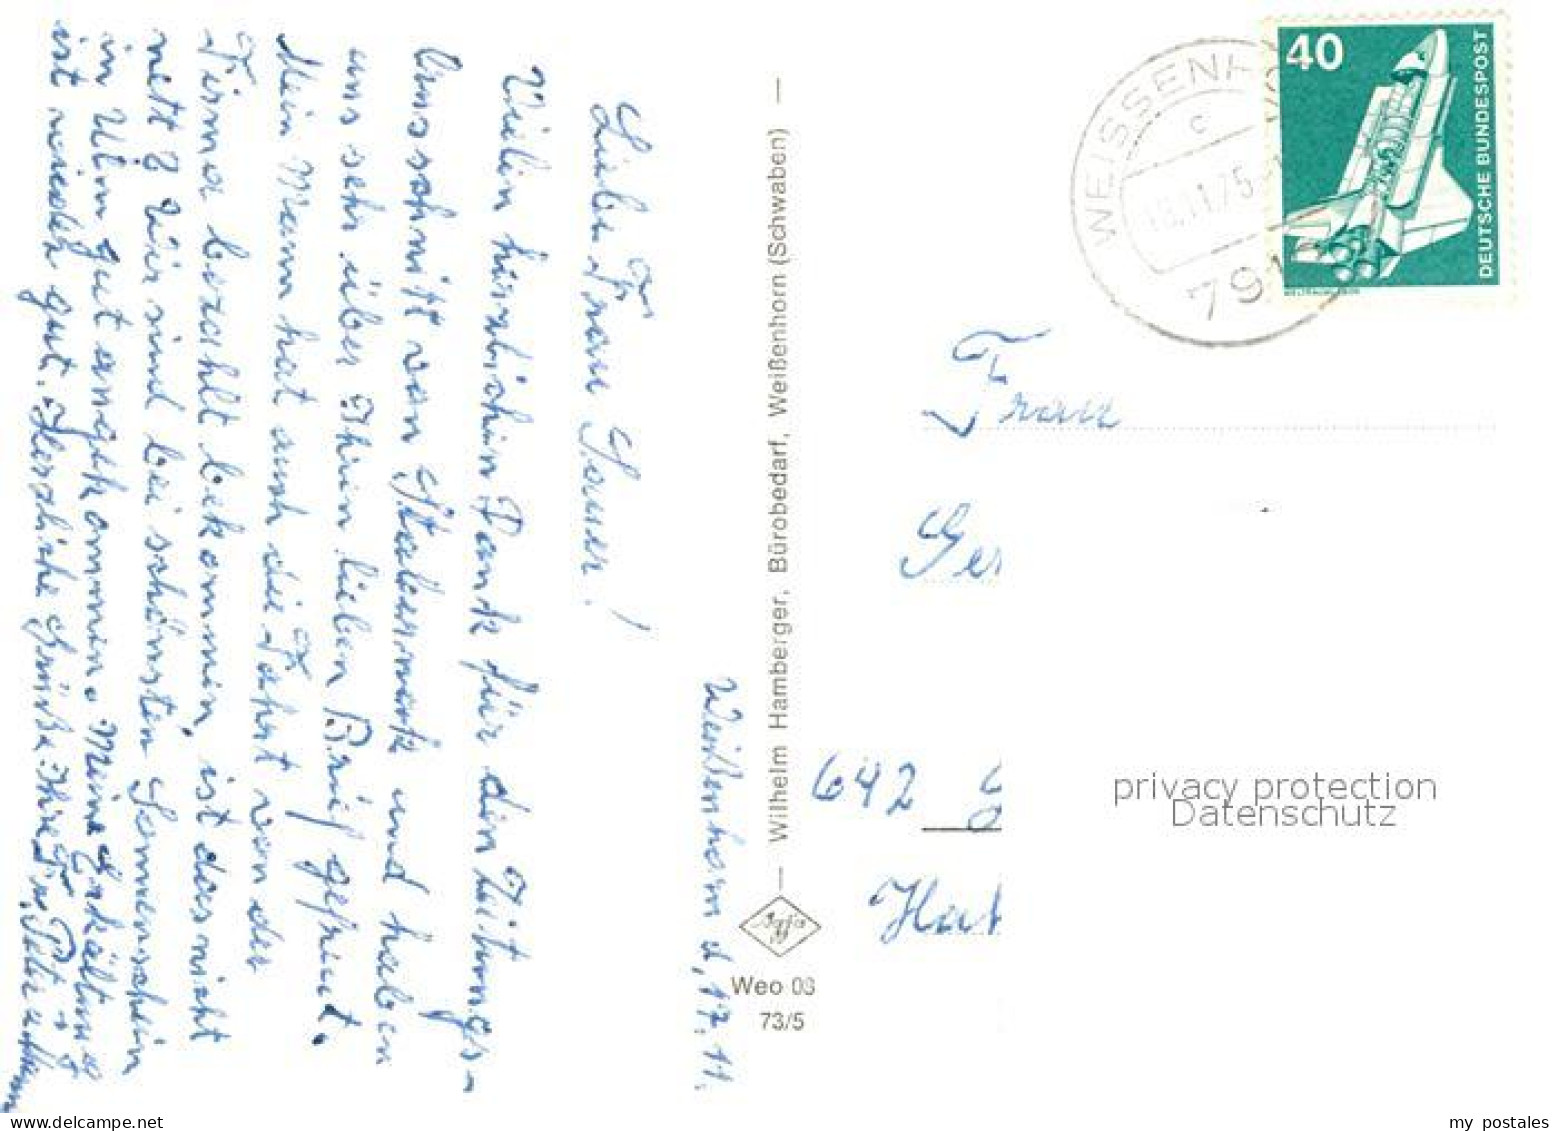 Weißenhorn d, 17. 11.
Liebe Frau Sauer!
Vielen herzlichen Dank für den Zeitungs-
ausschnitt von Steiermark und haben
uns sehr über Ihren lieben Brief gefreut.
Mein Mann hat auch die Fahrt von der
Firma bezahlt bekommen, ist das nicht
nett? Wir sind bei schönsten Sonnenschein
in Ulm gut angekommen. Meine Erkältung
ist wieder gut. Herzliche Grüße Ihre Fr.
Wilhelm Hamberger, Bürobedarf, Weißenhorn (Schwaben)
Agfa
Weo 08
73/5
WEISSENH
c
18.11.75
791
40
DEUTSCHE BUNDESPOST
Frau
Ger
642
Hat
privacy protection
Datenschutz
www.delcampe.net
my_postales